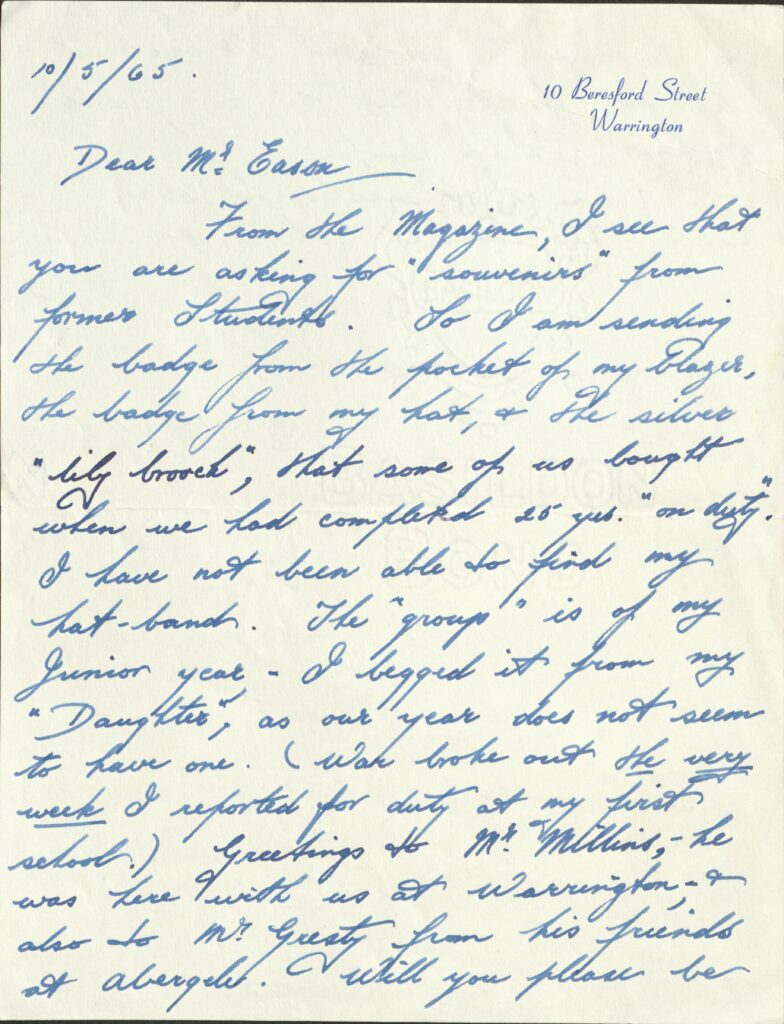 10/5/65.
10 Beresford Street
Warrington
Dear Mr. Eason
From the Magazine, I see that
you are asking for "souvenirs" from
former Students. So I am sending
the badge from the pocket of my blazer,
the badge from my hat, & the silver
"lily brooch", that some of us bought
when we had completed 25 yrs. "on duty".
I have not been able to find my
hat-band. The "group" is of my
Junior year - I begged it from my
"Daughter", as our year does not seem
to have one. (War broke out the very
week I reported for duty at my first
school.) Greetings to Mr. Millins, - he
was here with us at Warrington, - &
also to Mr. Gresty from his friends
at Abergele. Will you please be